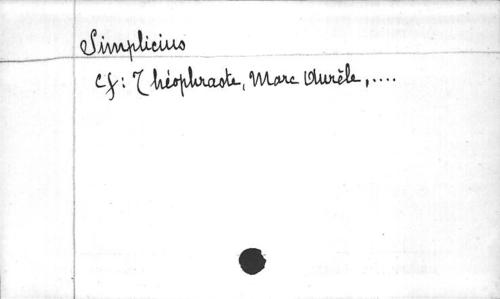 Simplicius
Cf: Théophraste, Marc Aurèle, ....